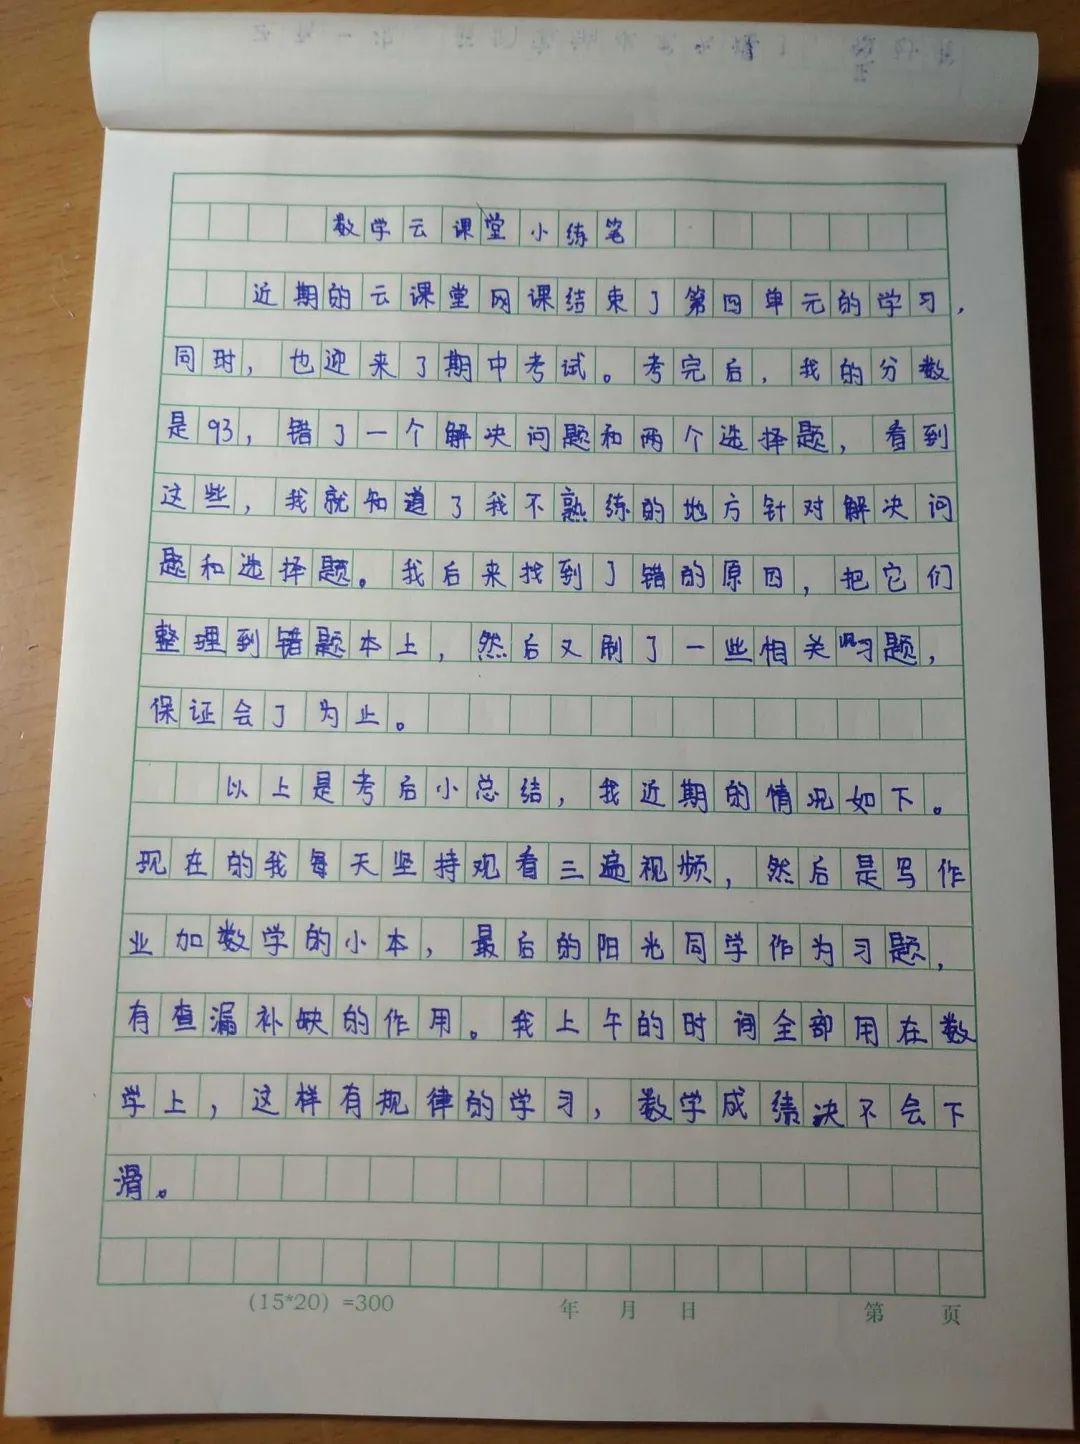 数学云课堂小练笔
近期的云课堂网课结束了第四单元的学习，
同时，也迎来了期中考试。考完后，我的分数
是93，错了一个解决问题和两个选择题，看到
这些，我就知道了我不熟练的地方针对解决问
题和选择题。我后来找到了错的原因，把它们
整理到错题本上，然后又刷了一些相关习题，
保证会了为止。
以上是考后小总结，我近期的情况如下。
现在的我每天坚持观看三遍视频，然后是写作
业加数学的小本，最后的阳光同学作为习题，
有查漏补缺的作用。我上午的时间全部用在数
学上，这样有规律的学习，数学成绩决不会下
滑。
(15*20) =300 年 月 日 第 页